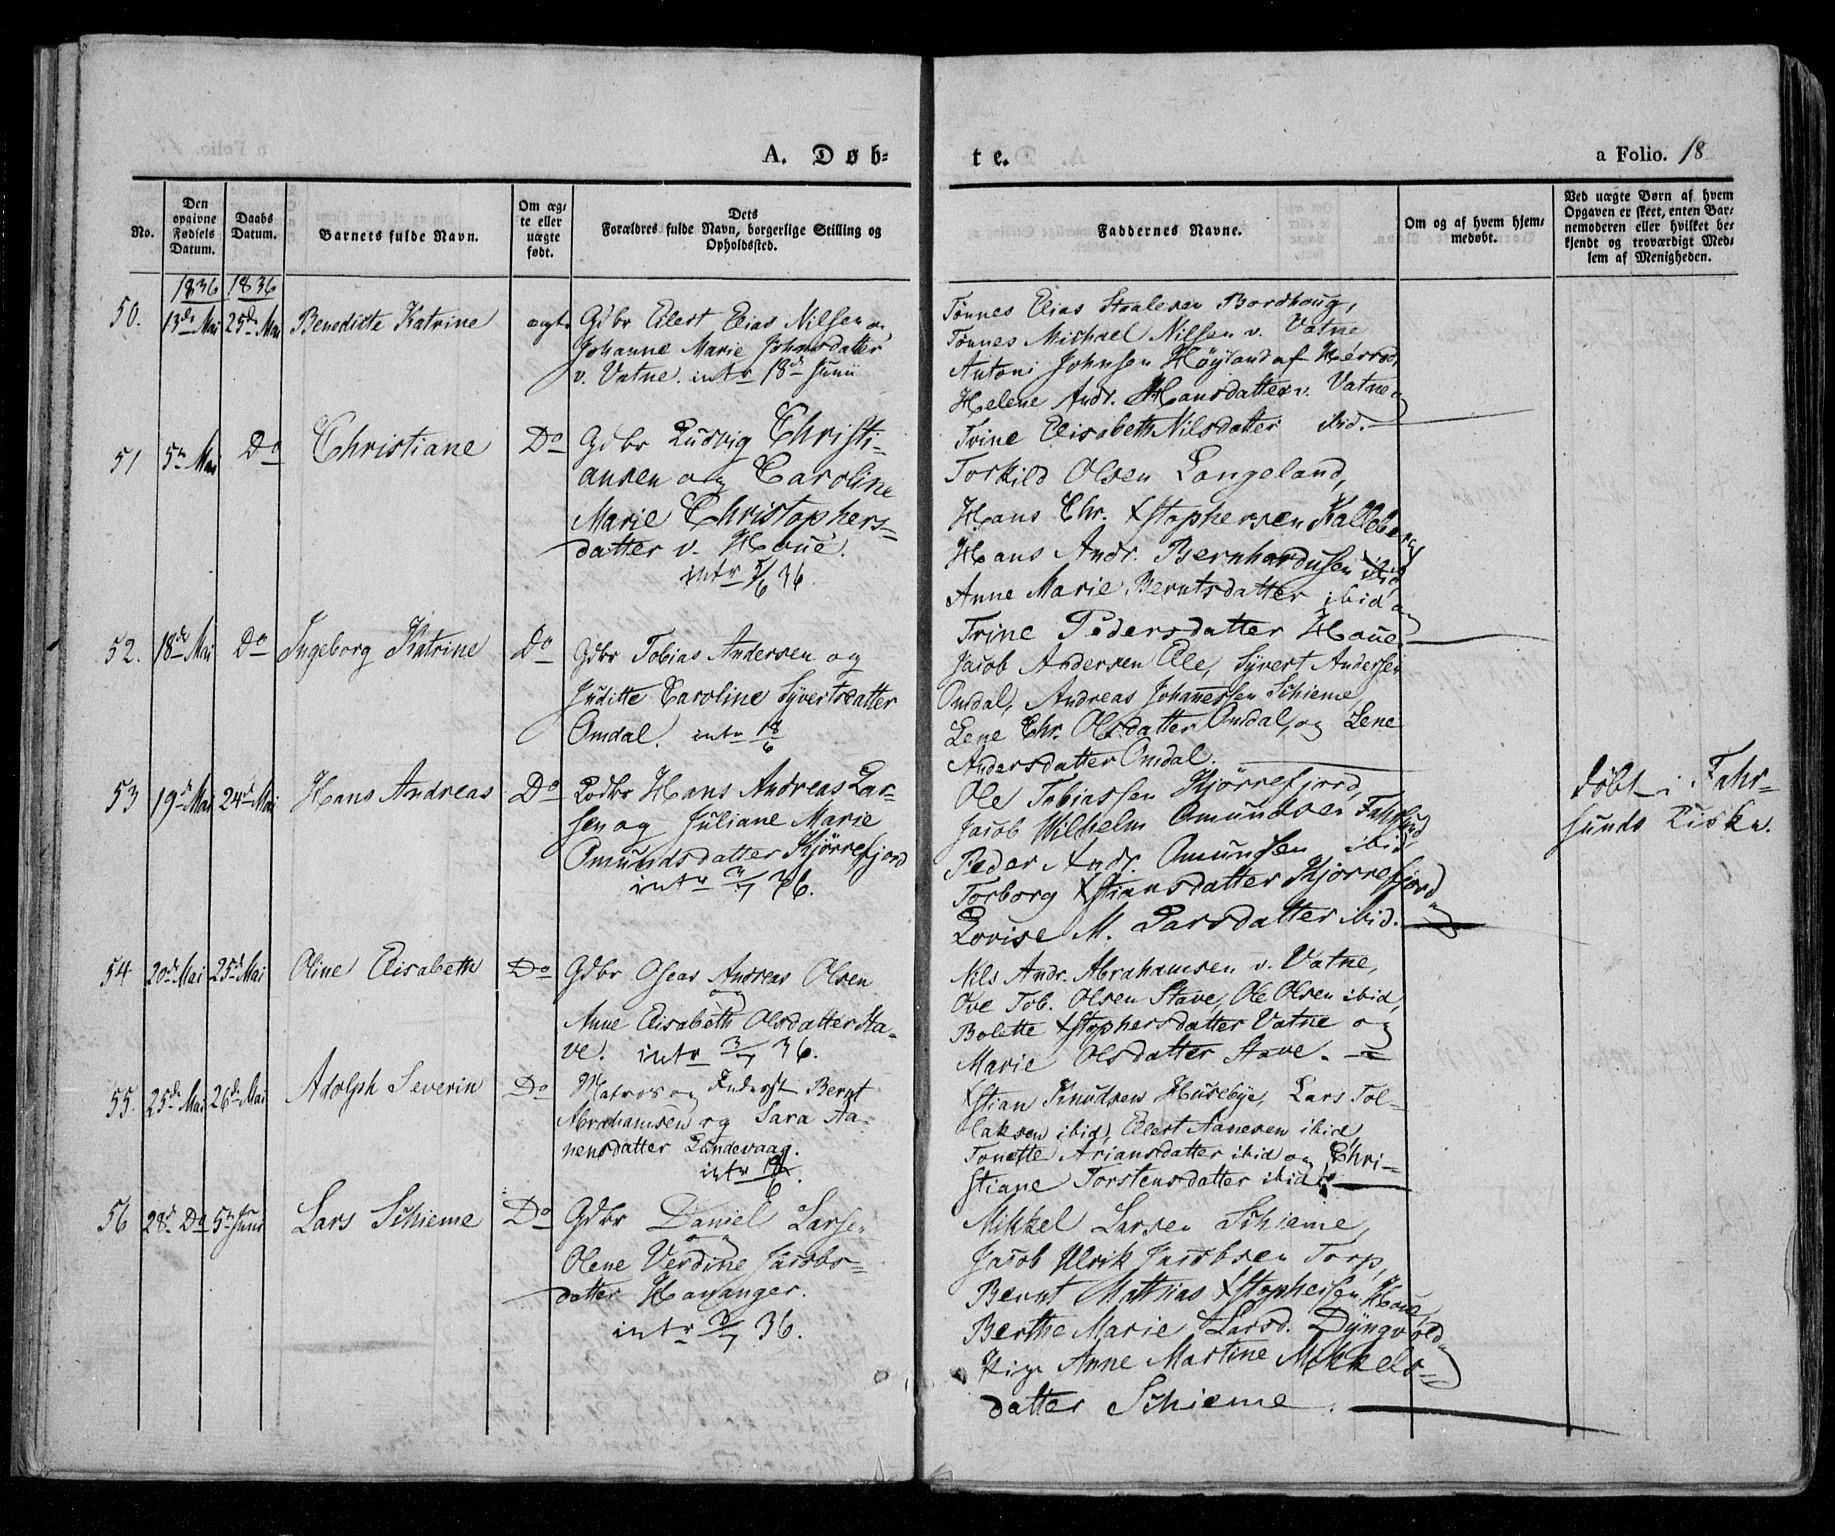 A. Døb-
te.
a Folio. 18
No.
Den opgivne Fødsels Datum.
Daabs Datum.
Barnets fulde Navn.
Om æg-
te eller
uægte
født.
Dets
Forældres fulde Navn, borgerlige Stilling og
Opholdssted.
Faddernes Navne.
Om og af hvem hjem-
medøbt.
Ved uægte Børn af hvem
Opgaven er skeet, enten Bar-
nemoderen eller hvilket be-
kjendt og troværdigt Med-
lem af Menigheden.
1836 1836
50. 13de Mai 25de Mai Beneditte Katrine ægte Gdbr Eilert Elias Nilsen og
Johanne Marie Johnsdatter
v. Vatne. intr 18de Junii
Tønnes Elias Staalesen Bordhoug,
Tønnes Michael Nilsen v. Vatne
Antoni Johnsen Høyland af Herred
Helene Andr. Hansdatter v. Vatne og
Trine Elisabeth Nilsdatter ibid.
51 5te Mai Do Christiane Do Gdbr Ludvig Christi-
ansen og Caroline
Marie Christophers-
datter v. Houe.
intr 5/6 36.
Torkild Olsen Langeland,
Hans Chr. Xstophersen Kalleberg
Hans Andr. Bernhardusen ibid
Anne Marie Berntsdatter ibid og
Trine Pedersdatter Houe
52. 18de Mai Do Ingeborg Katrine Do Gdbr Tobias Andersen og
Juditte Caroline Syvertsdatter
Omdal. intr 18/6
Jacob Andersen Ele, Syvert Andersen
Omdal, Andreas Johannessen Schieme
Lene Chr. Olsdatter Omdal, og Lene
Andersdatter Omdal.
53 19de Mai 24de Mai Hans Andreas Do Lodbr Hans Andreas Lar-
sen og Juliane Marie
Omundsdatter Kjørrefjord
intr 3/7 36.
Ole Tobiassen Kjørrefjord,
Jacob Wilhelm Omundsen Fahrsund,
Peder Andr. Omundsen ibid
Torborg Xstiansdatter Kjørrefjord og
Lovise M. Larsdatter ibid.
døbt i Fahr-
sunds Kirke.
54 20de Mai 25de Mai Oline Elisabeth Do Gdbr Oseas Andreas Olsen
og
Anne Elisabeth Olsdatter Sta-
ve. intr 3/7 36.
Nils Andr. Abrahamsen v. Vatne,
Ove Tob. Olsen Stave, Ole Olsen ibid,
Bolette Xstophersdatter Vatne og
Marie Olsdatter Stave.
55. 25de Mai 26de Mai Adolph Severin Do Matros og Inderst Bernt
Abrahamsen og Sara Aa-
nensdatter Lundevaag.
intr
Xstian Knudsen Huseby, Lars Tol-
laksen ibid, Eilert Aanesen ibid,
Tonette Ariansdatter ibid og Chri-
stiane Torstensdatter ibid
56 28de Do 5te Juni Lars Schieme Do Gdbr Daniel Larsen
og
Olene Verdine Jacobs-
datter Hananger.
intr 3/7 36.
Mikkel Larsen Schieme,
Jacob Ulrik Jacobsen Torp,
Bernt Mathias Xstophersen Houe,
Berthe Marie Larsd. Dyngvold og
Pige Anne Martine Mikkels-
datter Schieme.